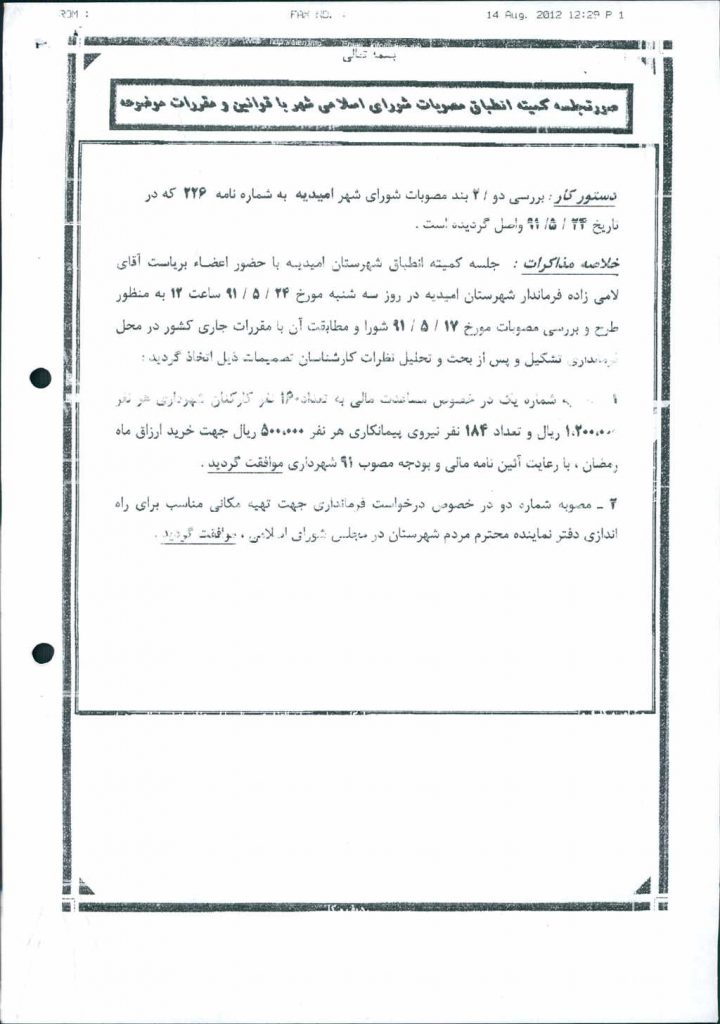 ROM :
FAX NO. :
14 Aug. 2012 12:29 P 1
بسمه تعالی
صورتجلسه کمیته انطباق مصوبات شورای اسلامی شهر با قوانین و مقررات موضوعه
دستور کار : بررسی دو / ۲ بند مصوبات شورای شهر امیدیه به شماره نامه ۲۲۶ که در
تاریخ ۲۴ / ۵ / ۹۱ واصل گردیده است .
خلاصه مذاکرات : جلسه کمیته انطباق شهرستان امیدیه با حضور اعضاء بریاست آقای
لامی زاده فرماندار شهرستان امیدیه در روز سه شنبه مورخ ۲۴ / ۵ / ۹۱ ساعت ۱۲ به منظور
طرح و بررسی مصوبات مورخ ۱۷ / ۵ / ۹۱ شورا و مطابقت آن با مقررات جاری کشور در محل
فرمانداری تشکیل و پس از بحث و تحلیل نظرات کارشناسان تصمیمات ذیل اتخاذ گردید :
۱ به شماره یک در خصوص مساعدت مالی به تعداد نفر کارکنان شهرداری هر نفر
۱،۲۰۰،۰۰۰ ریال و تعداد ۱۸۴ نفر نیروی پیمانکاری هر نفر ۵۰۰،۰۰۰ ریال جهت خرید ارزاق ماه
رمضان ، با رعایت آئین نامه مالی و بودجه مصوب ۹۱ شهرداری موافقت گردید .
۲ ـ مصوبه شماره دو در خصوص درخواست فرمانداری جهت تهیه مکانی مناسب برای راه
اندازی دفتر نماینده محترم مردم شهرستان در مجلس شورای اسلامی ، موافقت گردید .